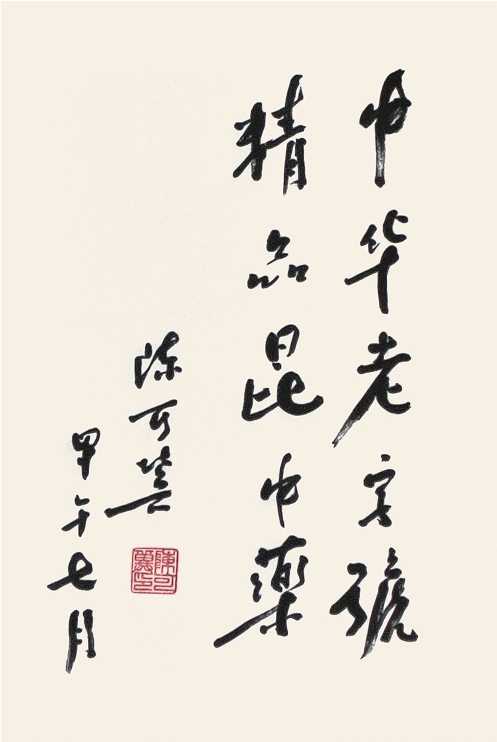 中华老字號
精品昆中藥
陈可冀
甲午七月
陳可
冀印